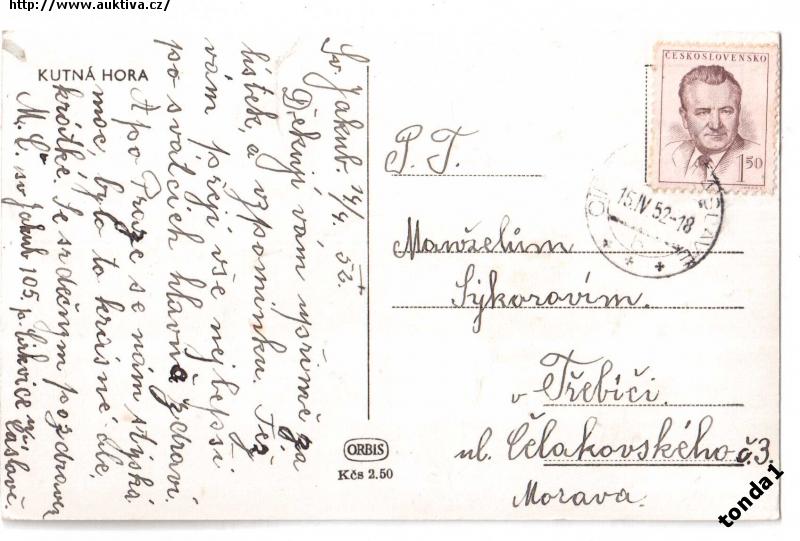 http://www.auktiva.cz/
KUTNÁ HORA
Sv. Jakub. 14/4. 52.
Děkuji vám upřímně za
lístek, a vzpomínku. Též
vám přeji vše nejlepší
po svátcích hlavně zdraví.
A po Praze se nám stýská
moc, bylo to krásné ale,
krátké. Se srdečným pozdravem
M. Č. sv Jakub 105, p. Církvice u
Čáslavě.
ORBIS
Kčs 2.50
ČESKOSLOVENSKO
1.50
15.IV 52-18
P. T.
Manželům
Sýkorovím.
v Třebíči.
ul. Čelakovského č. 3.
Morava.
tonda1